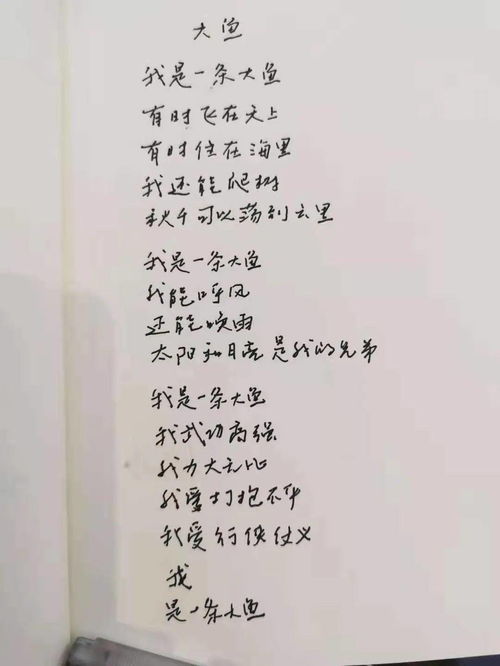 大鱼
我是一条大鱼
有时飞在天上
有时住在海里
我还能爬树
秋千可以荡到云里
我是一条大鱼
我能呼风
还能唤雨
太阳和月亮是我的兄弟
我是一条大鱼
我武功高强
我力大无比
我爱打抱不平
我爱行侠仗义
我
是一条大鱼